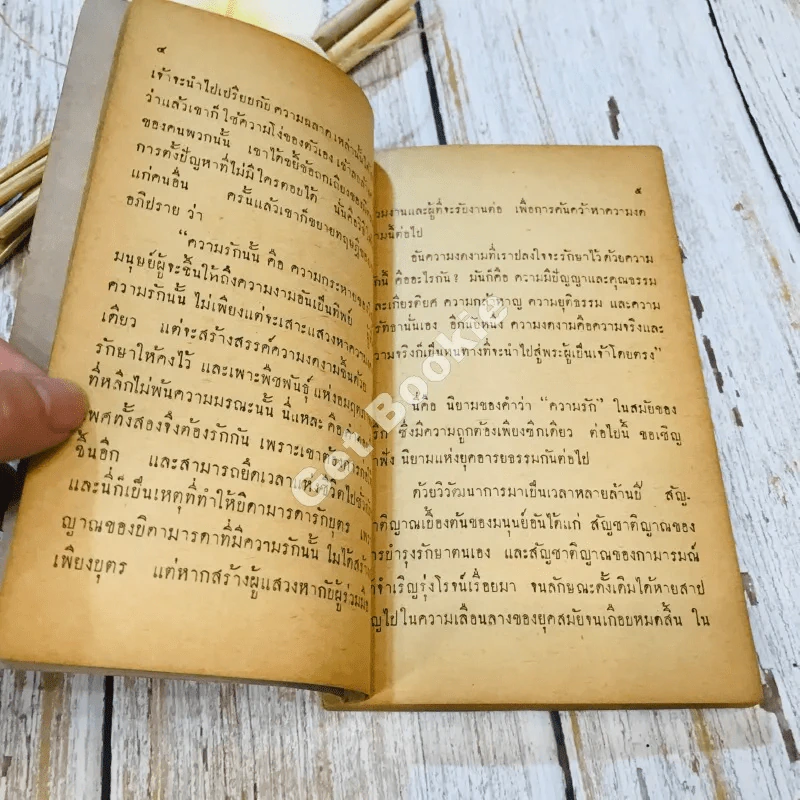 ๔
เข้าจะนำไปเปรียบกับ ความฉลาด เหล่านั้น
ว่าแล้วเขาก็ ใช้ความโง่ของตัวเอง
ของคนพวกนั้น เขาได้ขยี้ข้อถกเถียงของ
การตั้งปัญหาที่ไม่มีใครตอบได้ นั่นคือ
แก่คนอื่น ครั้นแล้วเขาก็ขยายทฤษฎี
อภิปราย ว่า
“ความรักนั้น คือ ความกระหายของ
มนุษย์ผู้จะชี้นให้ถึงความงามอันเป็นทิพย์
ความรักนั้น ไม่เพียงแต่จะเสาะแสวงหาความ
เดียว แต่จะสร้างสรรค์ความงดงามขึ้นด้วย
รักษาให้คงไว้ และเพาะพืชพันธุ์ แห่งอมฤต
ที่หลีกไม่พ้นความมรณะนั้น นี่แหละ คือ
เพศทั้งสองจึงต้องรักกัน เพราะเขาต้องการ
ขึ้นอีก และสามารถยืดเวลาแห่งชีวิตไป
และนี่ก็เป็นเหตุที่ทำให้บิดามารดารักบุตร
ญาณของบิดามารดาที่มีความรักนั้น ไม่ได้สร้าง
เพียงบุตร แต่หากสร้างผู้แสวงหากับผู้ร่วม
๕
ร่วมงานและผู้ที่จะรับงานต่อ เพื่อการค้นคว้าหาความงด
งามนี้ต่อไป
อันความงดงามที่เราปลงใจจะรักษาไว้ด้วยความ
รักนี้ คืออะไรกัน? มันก็คือ ความมีปัญญาและคุณธรรม
และเกียรติยศ ความกล้าหาญ ความยุติธรรม และความ
ศรัทธานั้นเอง อีกนัยหนึ่ง ความงดงามคือความจริงและ
ความจริงก็เป็นหนทางที่จะนำไปสู่พระผู้เป็นเจ้าโดยตรง”
นี่คือ นิยามของคำว่า “ความรัก” ในสมัยของ
ซึ่งมีความถูกต้องเพียงซีกเดียว ต่อไปนี้ ขอเชิญ
ฟัง นิยามแห่งยุคอารยธรรมกันต่อไป
ด้วยวิวัฒนาการมาเป็นเวลาหลายล้านปี สัญ-
ชาติญาณเบื้องต้นของมนุษย์อันได้แก่ สัญชาติญาณของ
การบำรุงรักษาตนเอง และสัญชาติญาณของกามารมณ์
จำเริญรุ่งโรจน์เรื่อยมา จนลักษณะดั้งเดิมได้หายสาป
สูญไปในความเลือนลางของยุคสมัยจนเกือบหมดสิ้น ใน
Got Bookie